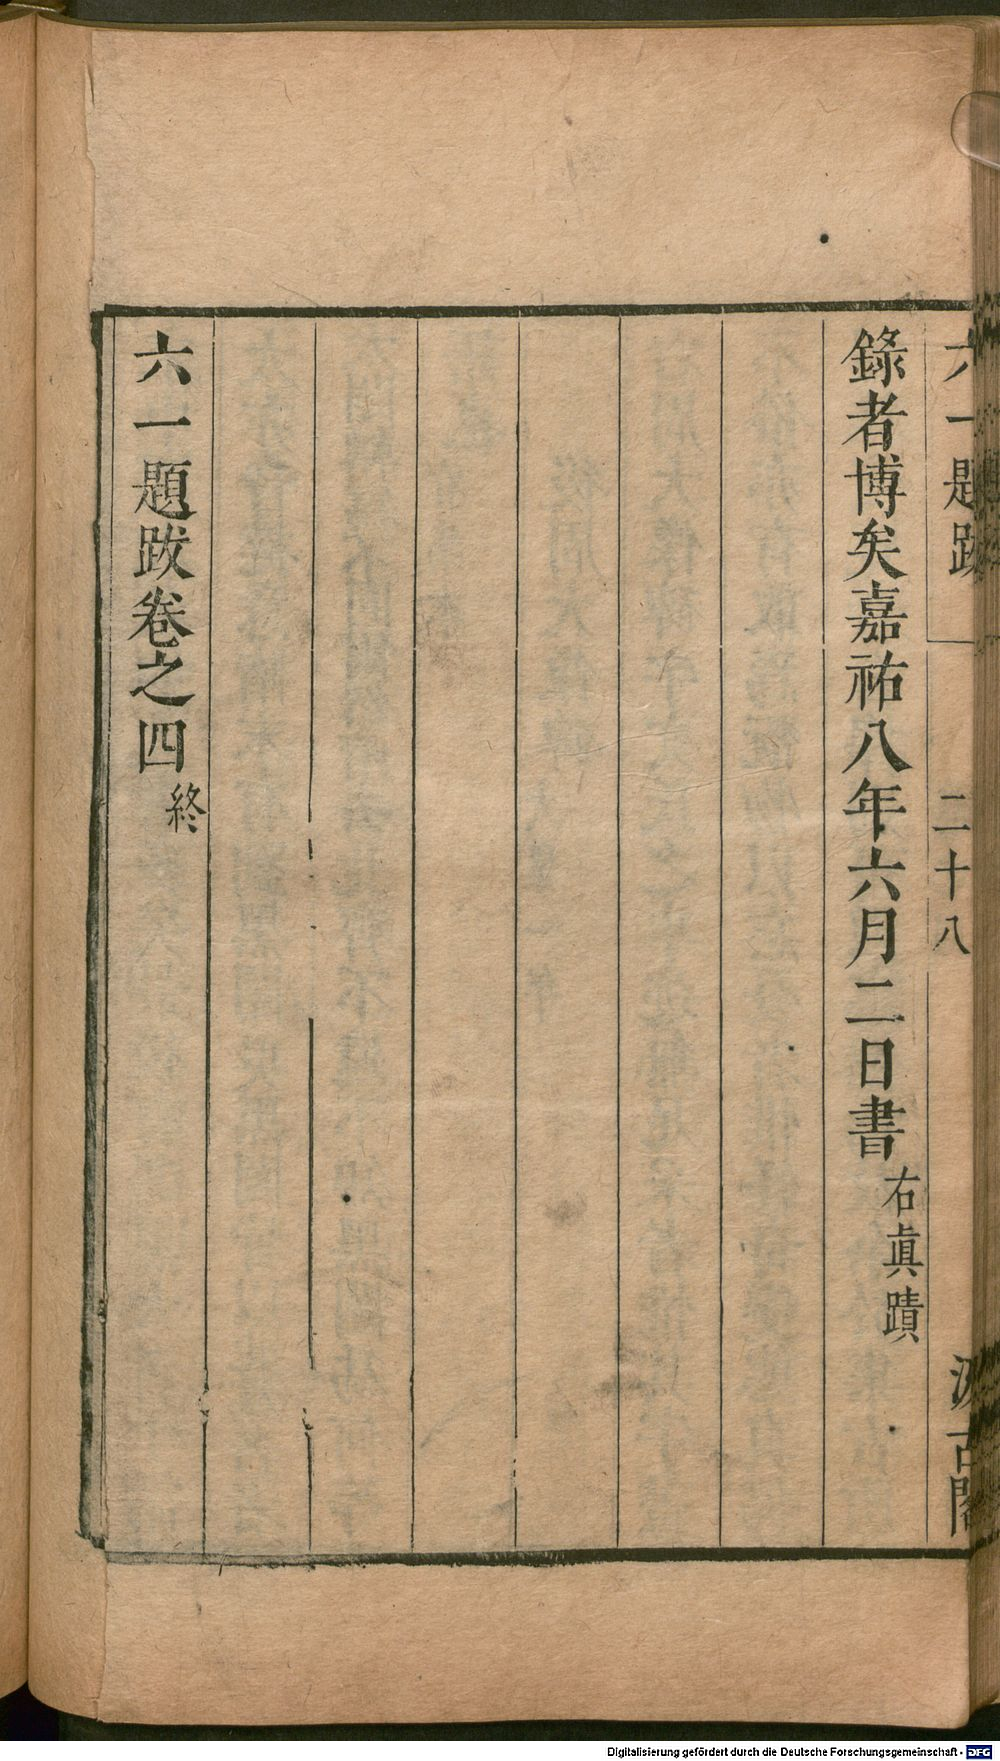 六一題跋
二十八
汲古閣
錄者博矣嘉祐八年六月二日書 右眞蹟
六一題跋卷之四 終
Digitalisierung gefördert durch die Deutsche Forschungsgemeinschaft - DFG